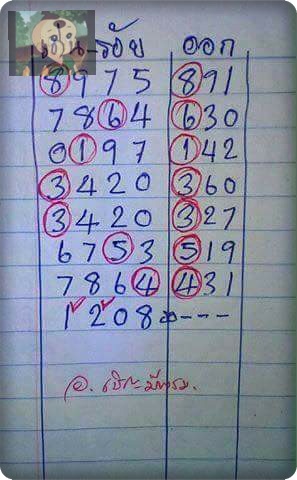 เน้น-ร้อย ออก
8975 891
7864 630
0197 142
3420 360
3420 327
6753 519
7864 431
1208 ---